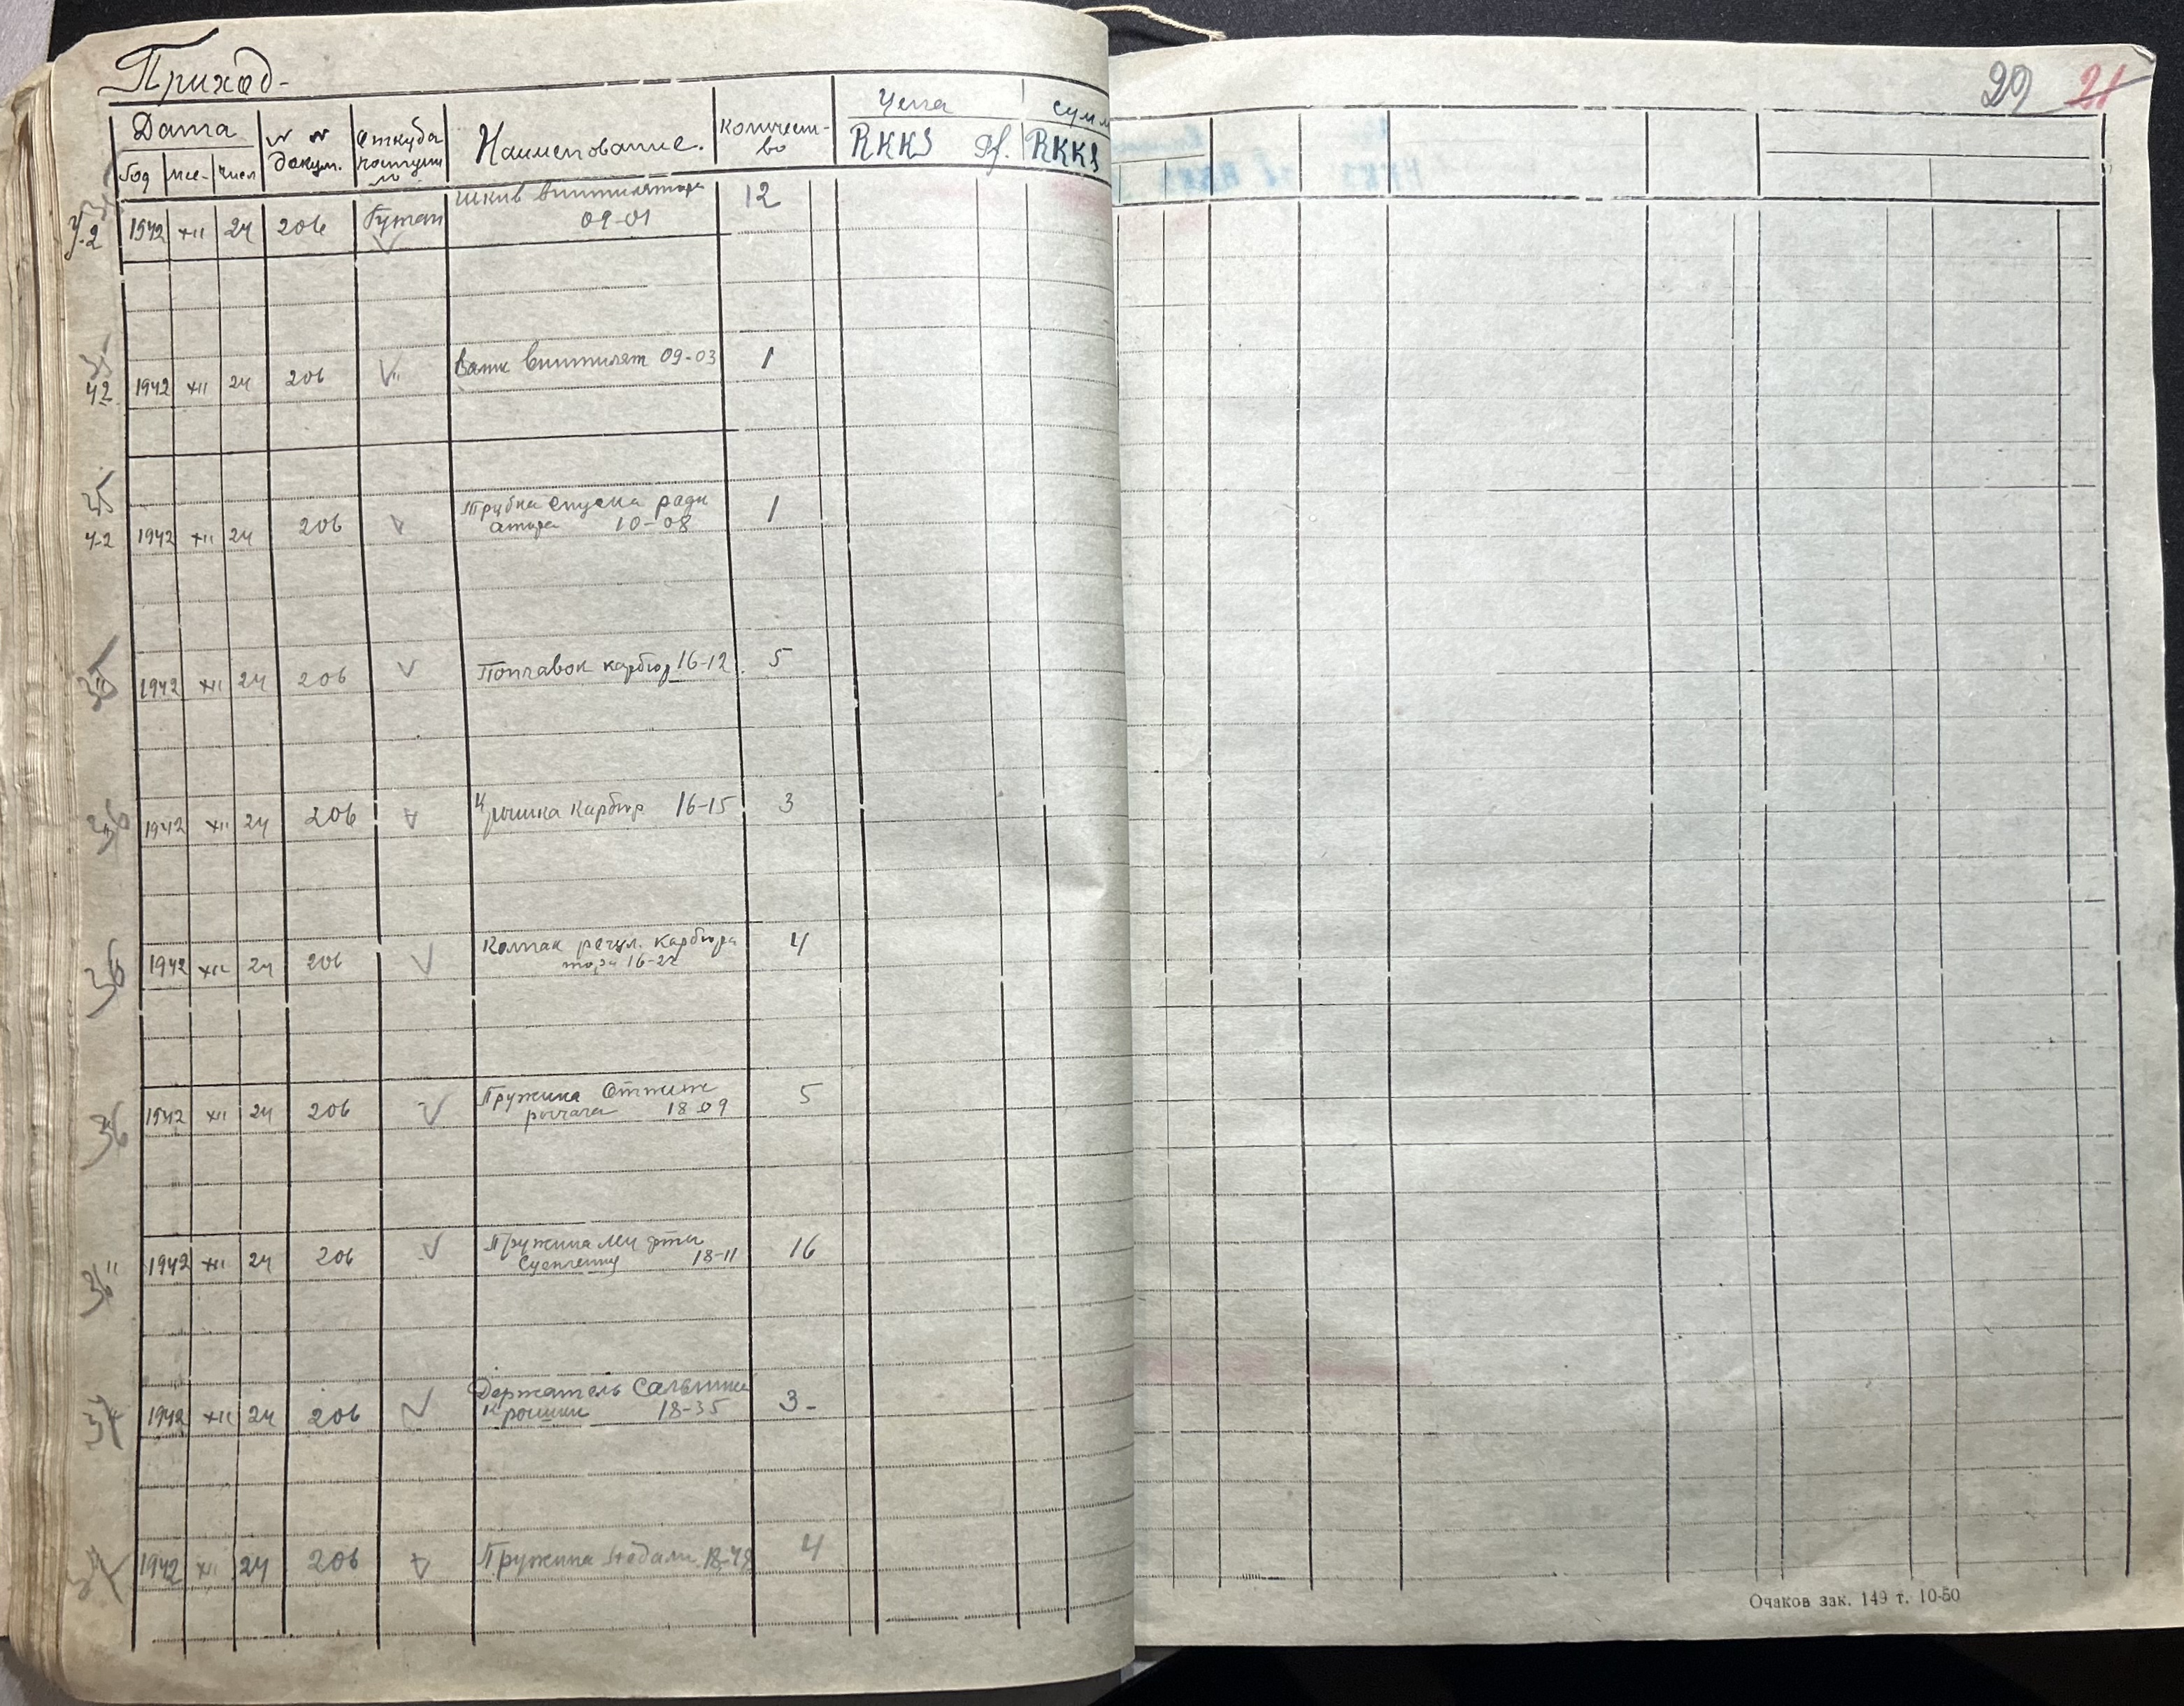 Приход-
29 21
Дата № № докум. Откуда поступило Наименование. Количест-во Цена Сумм
Год Ме- Число RKKS Pf. RKKS
Шкив Вентилятора 12
1942 XII 24 206 Гуман 09-01
1942 XII 24 206 V " Валик Вентилят 09-03 1
42
Трубка спуска ради 1
42 1942 XII 24 206 V атора 10-08
1942 XII 24 206 V Поплавок карбюр 16-12. 5
36 1942 XII 24 206 V Крышка Карбюр 16-15 3
Колпак регул. карбюра 4
36 1942 XII 24 206 V тора 16-22
Пружина Оттяж 5
36 1942 XII 24 206 V рычага 18 09
Пружина Муфты 16
36 1942 XII 24 206 V Сцепления 18-11
Держатель Сальника
37 1942 XII 24 206 V Крышки 18-35 3-
37 1942 XII 24 206 V Пружина педали 18-49 4
Очаков зак. 149 т. 10-50